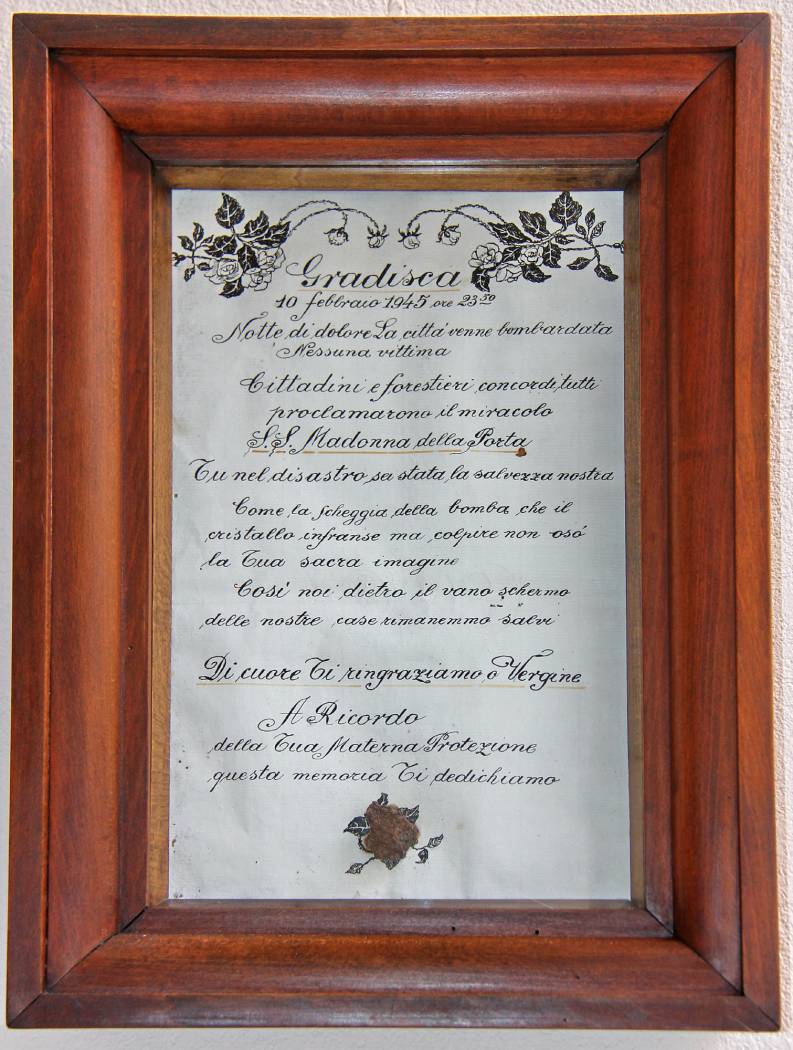 Gradisca
10 febbraio 1945 ore 23⁵⁰
Notte di dolore La città venne bombardata
Nessuna vittima
Cittadini e forestieri concordi tutti
proclamarono il miracolo
S.S. Madonna della Porta
Tu nel disastro sa stata la salvezza nostra
Come la scheggia della bomba che il
cristallo infranse ma colpire non osò
la Tua sacra imagine
Così noi dietro il vano schermo
delle nostre case rimanemmo salvi
Di cuore Ti ringraziamo o Vergine
A Ricordo
della Tua Materna Protezione
questa memoria Ti dedichiamo